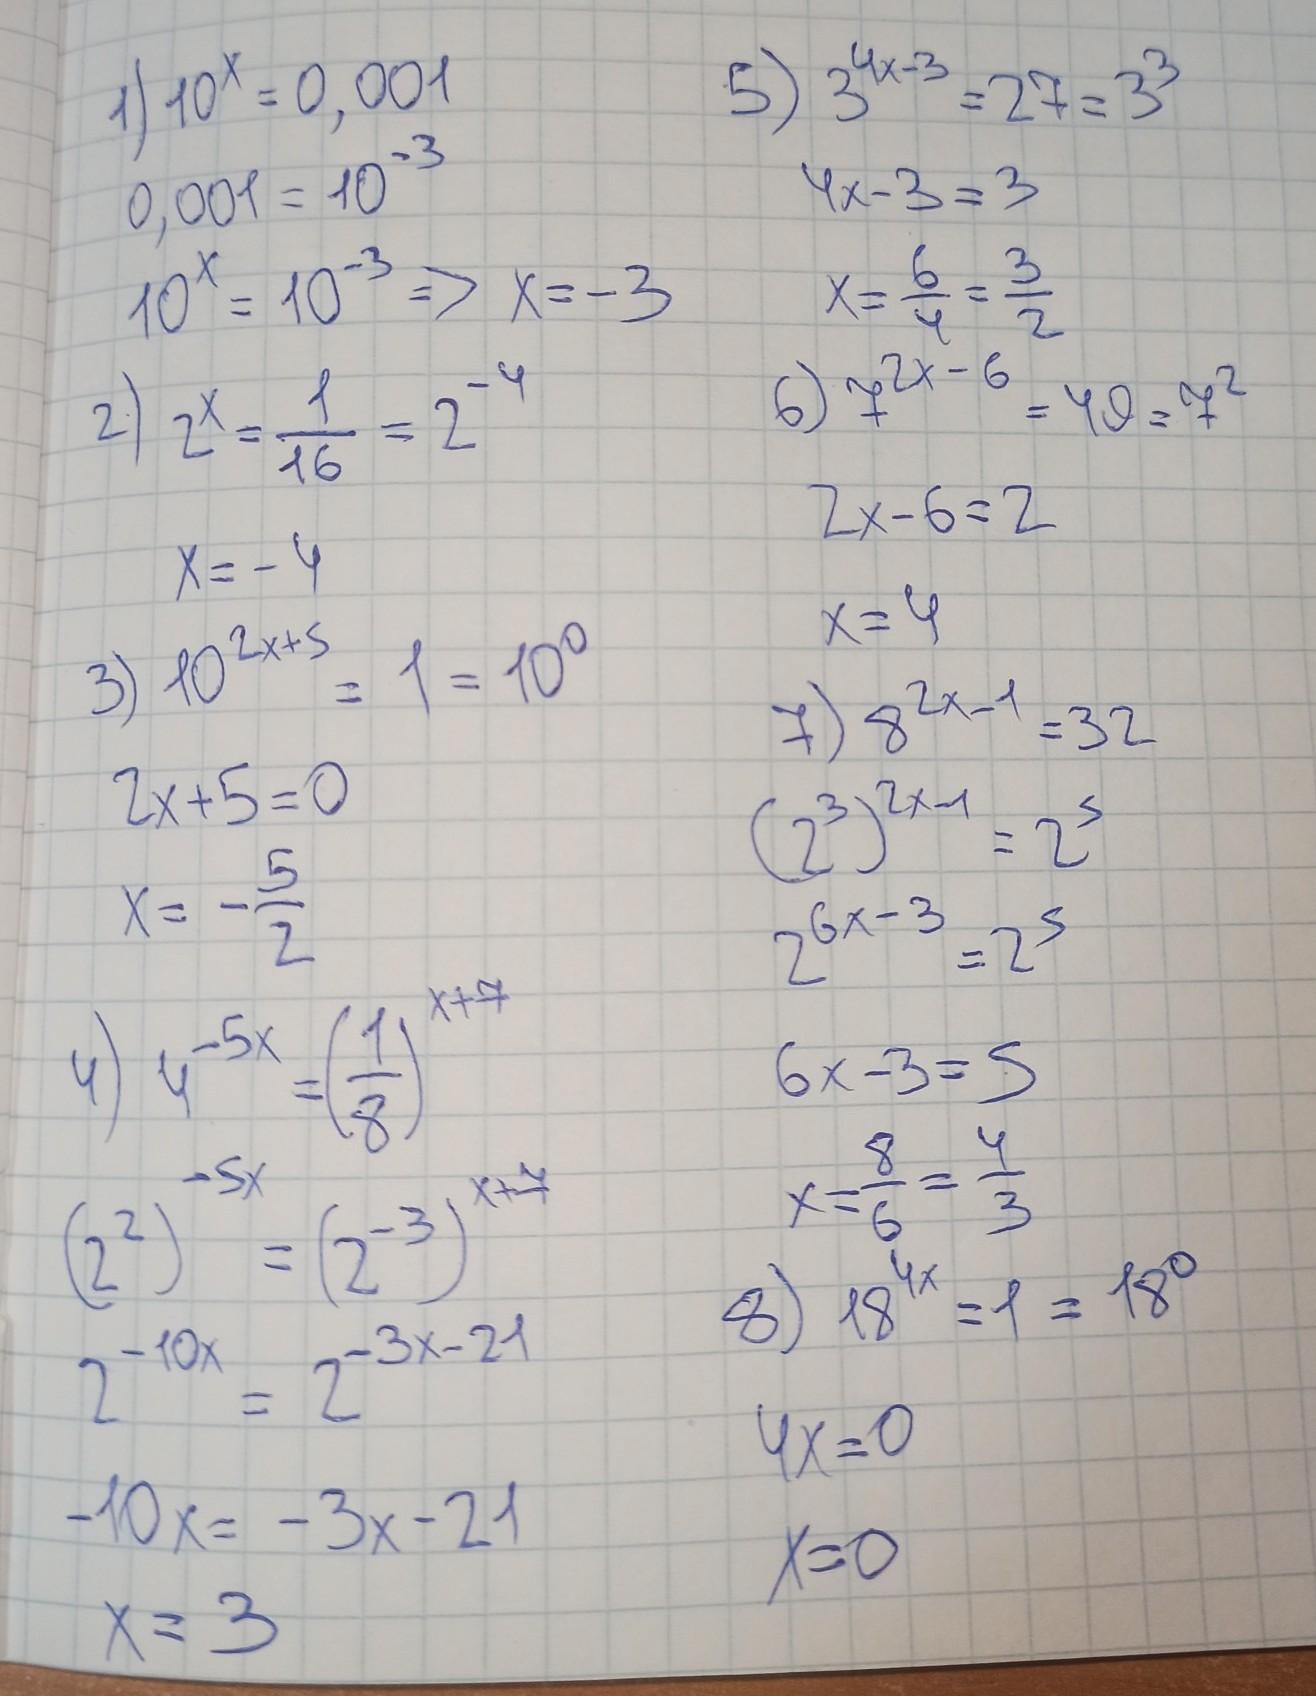 1) 10^x = 0,001
0,001 = 10^-3
10^x = 10^-3 => x = -3
2) 2^x = 1/16 = 2^-4
x = -4
3) 10^2x+5 = 1 = 10^0
2x+5=0
x = -5/2
4) 4^-5x = (1/8)^x+7
(2^2)^-5x = (2^-3)^x+7
2^-10x = 2^-3x-21
-10x = -3x-21
x = 3
5) 3^4x-3 = 27 = 3^3
4x-3=3
x = 6/4 = 3/2
6) 7^2x-6 = 49 = 7^2
2x-6=2
x=4
7) 8^2x-1 = 32
(2^3)^2x-1 = 2^5
2^6x-3 = 2^5
6x-3=5
x = 8/6 = 4/3
8) 18^4x = 1 = 18^0
4x=0
x=0